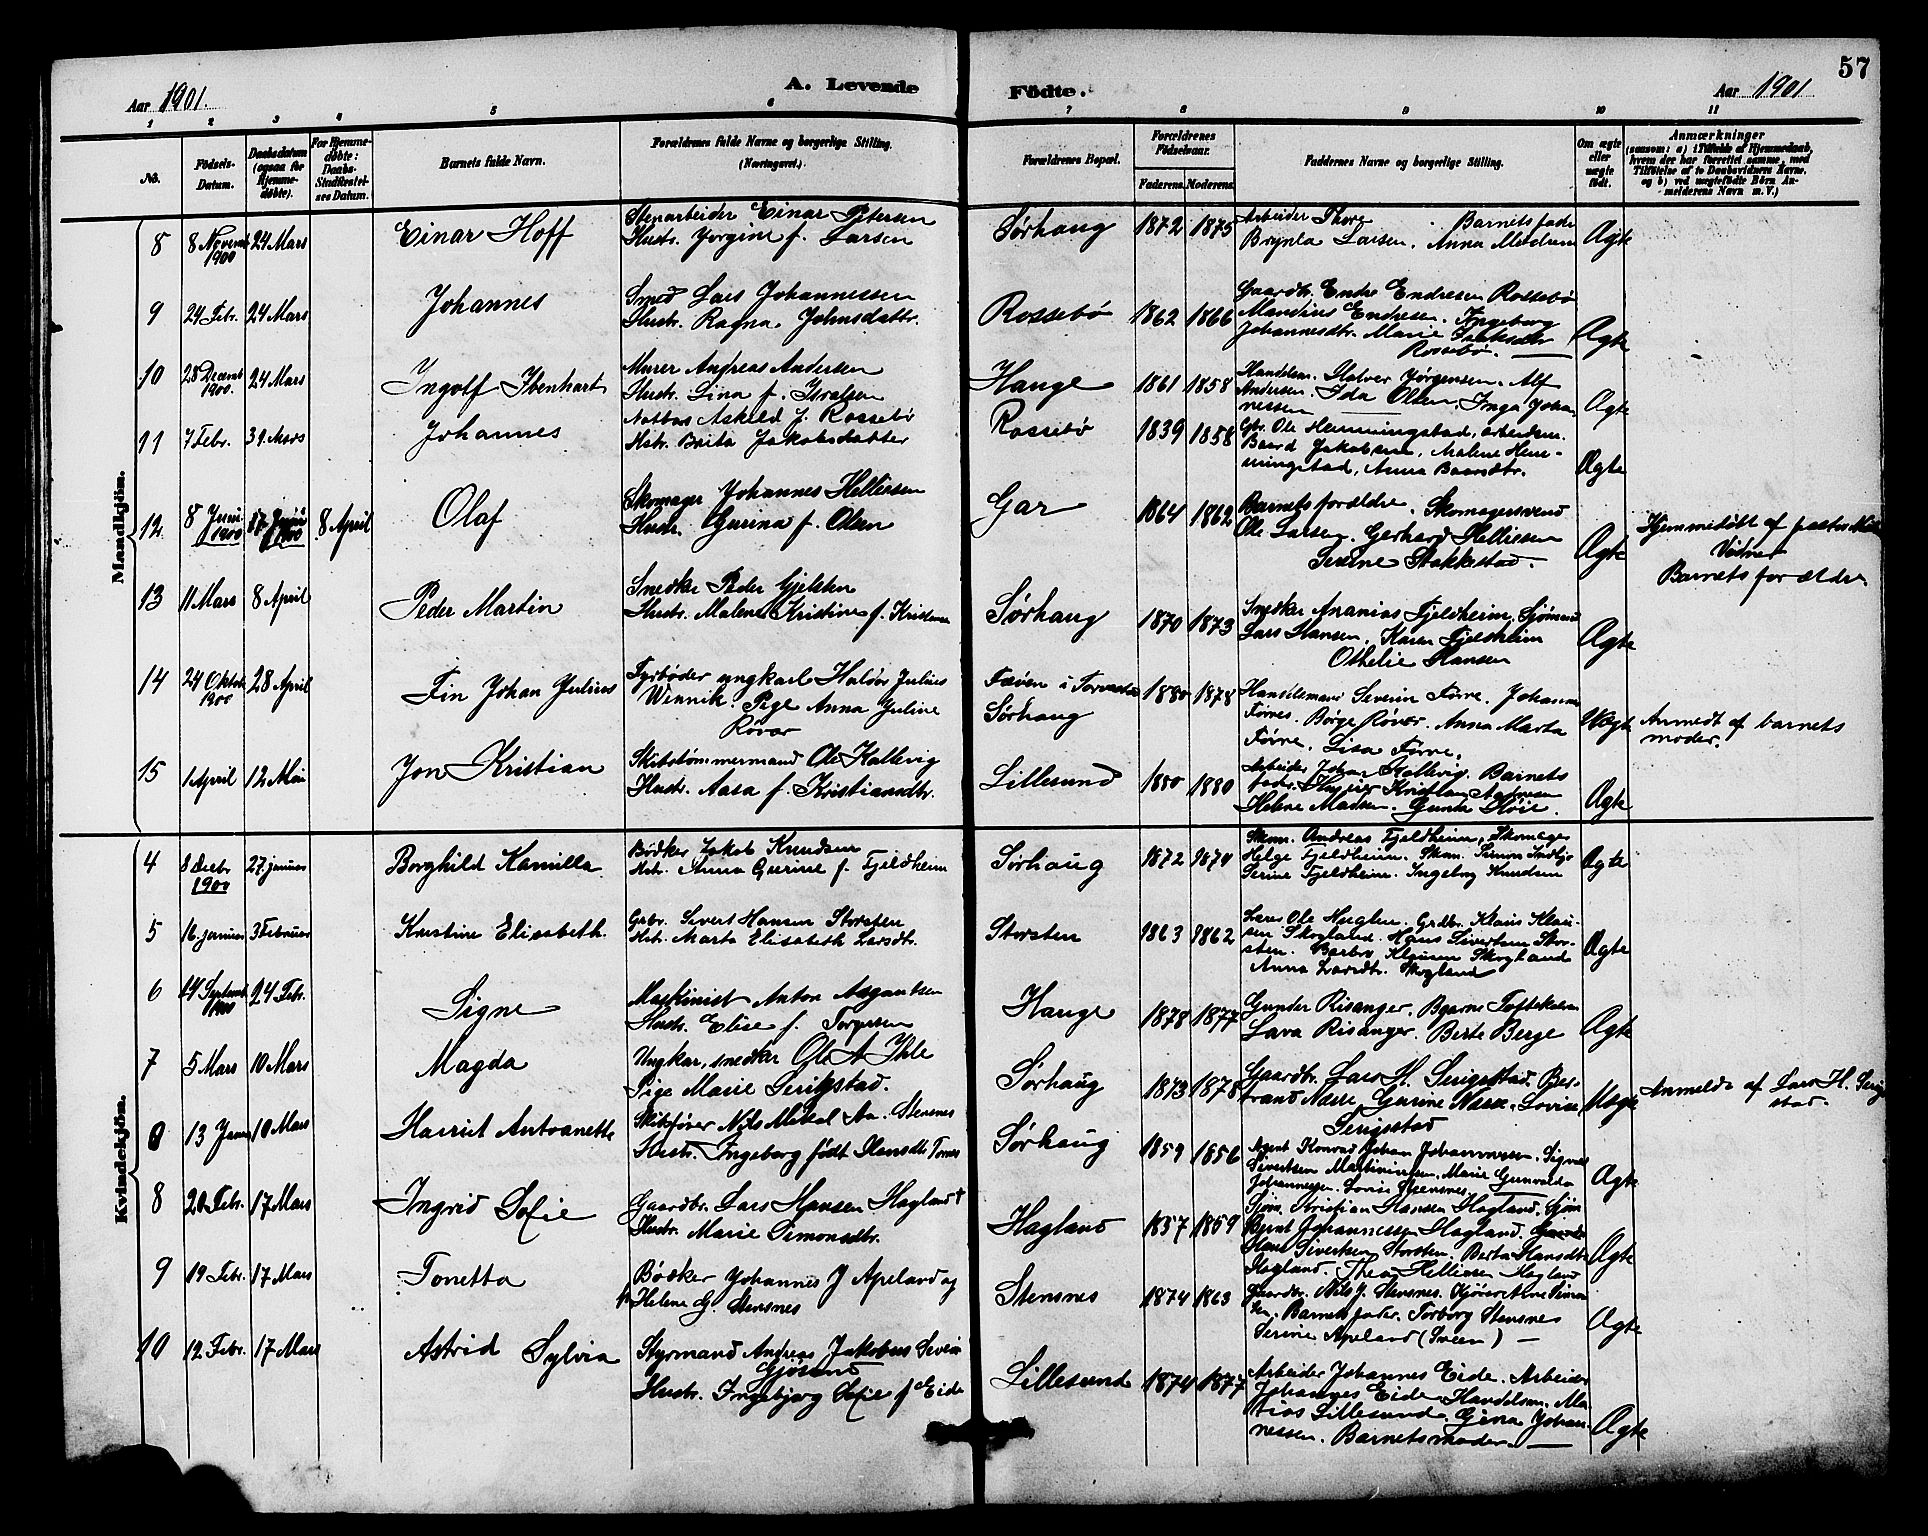 57
Aar 1901. A. Levende Födte. Aar 1901
1 2 3 4 5 6 7 8 9 10 11
No.
Födsels-Datum.
Daabsdatum (ogsaa for Hjemmedöbte).
For Hjemmedöbte: Daabs-Stadfæstelses Datum.
Barnets fulde Navn.
Forældrenes fulde Navne og borgerlige Stilling. (Næringsvei.)
Forældrenes Bopæl.
Forældrenes Födselsaar.
Faderens. Moderens.
Faddernes Navne og borgerlige Stilling.
Om ægte eller uægte födt.
Anmærkninger
(saasom: a) i Tilfælde af Hjemmedaab, hvem der har forrettet samme, med Tilföielse af to Daabsvidners Navne, og b) ved uægtefödte Börn Anmelderens Navn m. V.)
Mandkjön.
8 8 Novemb 1900 24 Mars Einar Hoff
Stenarbeider Einar Petersen
Hustr. Jorgine f. Larsen
Sørhaug 1872 1875
Arbeider Thore Barnets fader
Larsen. Anna
Ægte
9 24 Febr. 24 Mars Johannes
Smed Lars Johannessen
Hustr. Ragna Johnsdattr.
Rossebø 1862 1866
Gaardbr. Endre Endresen Rossebø
Mandius Endresen. Ingeborg
Johannesdtr. Marie
Rossebø.
Ægte
10 28 Decemb 1900. 24 Mars Ingolf Ibenhart
Murer Andreas Andersen
Hustr. Lina f. Israelsen
Hauge 1861 1858
Handelsm. Halvor Jørgensen. Alf
Andersen. Ida Olsen. Inga Johannessen
Ægte
11 7 Febr. 31 Mars Johannes
Askild J. Rossebø
Hstr. Brita Jakobsdatter
Rossebø 1839 1858
Gbr. Ole Hemmingstad, arbeidsm.
Baard Jakobsen, Malene Hemmingstad, Anna Baardsdtr.
Ægte
12 8 Juni 1900 17 Juni 1900 8 April Olaf
Skomager Johannes Helliesen
Hustr. Gurina f. Olsen
Gar 1864 1862
Barnets forældre. Skomagersvend
Ole Larsen. Gerhard Helliesen
Serine Stakkestad.
Ægte
Hjemmedøbt af pastor
Vidner
Barnets forældre
13 11 Mars 8 April Peder Martin
Snedker Peder Gjelsten
Hustr. Malene Kristine f. Kristensen
Sørhaug 1870 1873
Snedker Ananias Fjeldheim, Sjømand
Lars Hansen. Karen Fjeldheim
Othelie Hansen
Ægte
14 24 Oktob 1900 28 April Fin Johan Julius
Fyrbøder ungkarl Halvor Julius
Winnik. Pige Anna Juline
Røvær
i Torvestad
Sørhaug
1880 1878
Handelsmand Severin Førre. Johannes
Førres. Børge Røvær. Anna Marta
Førre. Lisa Førre.
Uægte
Anmeldt af barnets
moder.
15 1 April 12 Mai Jon Kristian
Skibstømmermand Ole Kallevig
Hustr. Aasa f. Kristiansdtr.
Lillesund 1880
Arbeider Johan Kallevig. Barnets
fader. Kristian
Helene Madsen. Gunda Høie.
Ægte
Kvindekjön.
4 8 Decbr 1900 27 januar Borghild Kamilla
Bødker Jakob Knudsen
Hstr. Anna Gurine f. Fjeldheim
Sørhaug 1872 1874
Skom. Andreas Fjeldheim, Skomager
Helge Fjeldheim. Skom. Simon
Serine Fjeldheim. Ingeborg Knudsen
Ægte
5 16 januar 3 Februar Kristine Elisabeth.
Grbr. Sivert Hansen Storsten
Hstr. Marta Elisabeth Larsdt.
Storsten 1863 1862
Lars Ole Huglen. Grdbr. Klaus Klausen Skogland. Hans Sivertsen Storsten. Barbro Klausen Skogland
Anna Larsdt. Skogland
Ægte
6 14 Septemb 1900 24 Febr. Signe
Maskinist Anton Asgautsen
Hustr. Elise f. Torgersen
Hauge 1878 1877
Gunder Risanger. Bjarne
Lava Risanger. Berte Berge
Ægte
7 5 Mars 10 Mars Magda
Ungkar, snedker Ole A Ihle
Pige Marie Serigstad.
Sørhaug 1873 1878
Gaardbr. Lars H. Serigstad. Bertrand Næsse. Gurine Næsse. Lovise
Serigstad
Uægte
Anmeldt af Lars H. Serigstad.
8 13 Janu 10 Mars Harriet Antoanette
Skibsfører Nils Mikal Aa. Stensnes
Hustr. Ingeborg født Hansdtr
Sørhaug 1859 1856
Agent Konrad Johan Johannessen. Signe
Sivertsen Marie
Johannessen. Lovise Stensnes.
Ægte
8 20 Febr. 17 Mars Ingrid Sofie
Gaardbr. Lars Hansen Hagland
Hustr. Marie Simonsdtr.
Hagland 1857 1859
Sjøm. Kristian Hansen Hagland. Sjøm
Bernt Johannessen Hagland.
Hans Sivertsen Storsten. Berta Hansdtr
Hagland. Thea Helliesen Hagland
Ægte
9 19 Febr. 17 Mars Tonetta
Bødker Johannes J Apeland og
Helene G. Stensnes
Stensnes 1874 1863
Gaardbr. Nils J. Stensnes.
Barnets fader. Torborg Stensnes
Serine Apeland (Sveen)
Ægte
10 12 Febr. 17 Mars Astrid Sylvia
Styrmand Andreas Jakobus Severin
Gjøsund
Hustr. Ingebjorg Sofie f Eide
Lillesund 1874 1877
Arbeider Johannes Eide. Arbeider
Johannes Eide Handelsm. Matias Lillesund. Gina Johannessen. Barnets moder.
Ægte